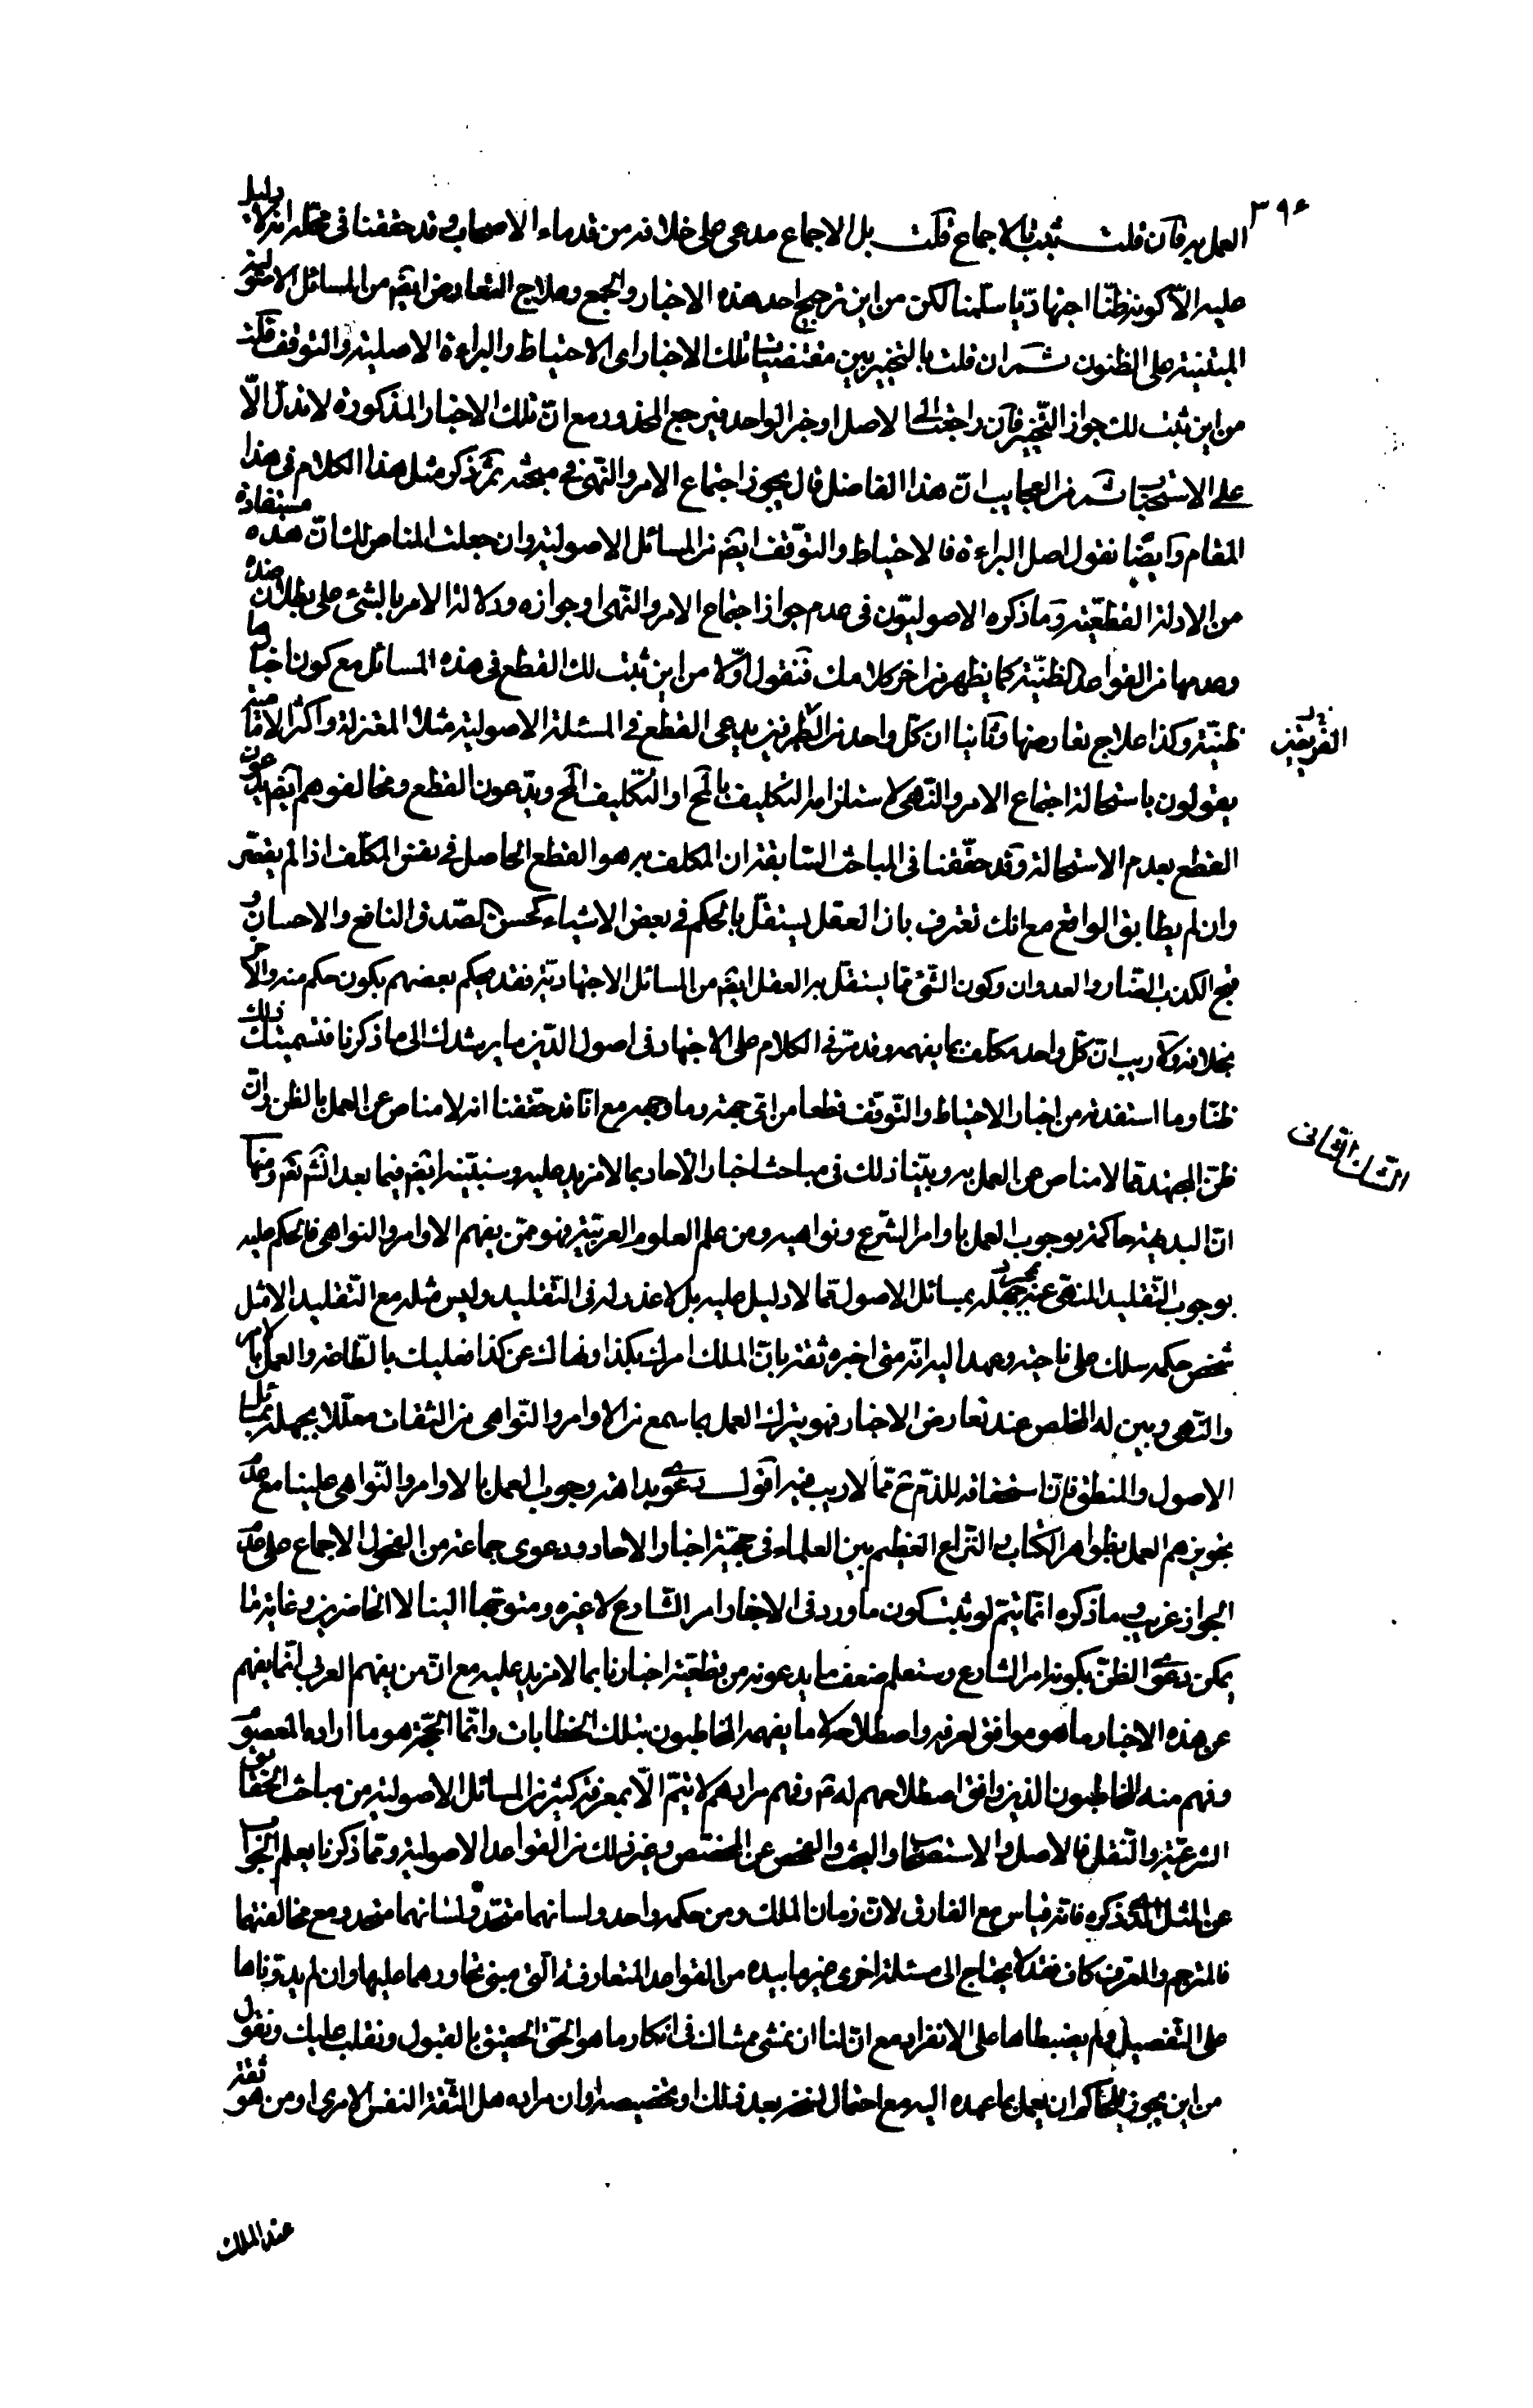 ٣٩۶
العمل به فان قلت ثبت بالاجماع قلت بل الاجماع مدعى على خلافه من قدماء الاصحاب وقد حققنا فى محله انه لا دليل
عليه الا كونه ظنا اجتهاديا سلمنا لكن من اين ترجيح احد هذه الاخبار والجمع وعلاج التعارض ايضم من المسائل الاصولية
المبتنية على الظنون ثم ان قلت بالتخيير بين مقتضيات تلك الاخبار اى الاحتياط والبراءة الاصلية والتوقف قلت
من اين ثبت لك جواز التخيير فان راجعت الى الاصل او خبر الواحد فيرجع المحذور مع ان تلك الاخبار المذكورة لا تدل الا
على الاستحباب ثم من العجايب ان هذا الفاضل قال بجواز اجتماع الامر والنهى فى مبحثه ثم ذكر مثل هذا الكلام فى هذا
المقام وايضا نقول اصل البراءة فالاحتياط والتوقف ايضم من المسائل الاصولية وان جعلت المناص لك ان هذه مستفادة
من الادلة القطعية وما ذكره الاصوليون فى عدم جواز اجتماع الامر والنهى او جوازه ودلالة الامر بالشئ على بطلان ضده
وعدمها من القواعد الظنية كما يظهر من اخر كلامك فنقول اولا من اين ثبت لك القطع فى هذه المسائل مع كون اخبارها
ظنية وكذا علاج تعارضها وثانيا ان كل واحد من الطرفين يدعى القطع فى المسئلة الاصولية مثلا المعتزلة واكثر الامامية
الفريقين
يقولون باستحالة اجتماع الامر والنهى لاستلزامه التكليف بالمح او التكليف المح ويدعون القطع ومخالفوهم ايضم يدعون
القطع بعدم الاستحالة وقد حققنا فى المباحث السابقة ان المكلف به هو القطع الحاصل فى نفس المكلف اذا لم يقصر
وان لم يطابق الواقع مع انك تعترف بان العقل يستقل بالحكم فى بعض الاشياء كحسن الصدق النافع والاحسان و
قبح الكذب الضار والعدوان وكون الشئ مما يستقل به العقل ايضم من المسائل الاجتهادية فقد يحكم بعضهم بكون حكم منه والاخر
بخلافه ولا ريب ان كل واحد مكلف بما يفهمه وقد مر فى الكلام على الاجتهاد فى اصول الدين ما يرشدك الى ما ذكرنا فتسميتك ذلك
ظنا وما استفدته من اخبار الاحتياط والتوقف قطعا من اى جهة وما وجهه مع انا قد حققنا انه لا مناص عن العمل بالظن وان
ظن المجتهد مما لا مناص عن العمل به وبينا ذلك فى مباحث اخبار الآحاد بما لا مزيد عليه وسنبينه ايضم فيما بعد انشم تعم ومنها
الشك الثانى
ان البديهة حاكمة بوجوب العمل باوامر الشرع ونواهيه ومن علم العلوم العربية فهو ممن يفهم الاوامر والنواهى فالحكم عليه
بوجوب التقليد المنهى عنه بمجرد جهله بمسائل الاصول مما لا دليل عليه بل لا عذر له فى التقليد وليس مثله مع التقليد الا مثل
شخص حكمه سلك على ناحية وعهد اليه انه متى اخبره ثقة بان الملك امرك بكذا ونهاك عن كذا فعليك بالطاعة والعمل بالامر
والنهى وبين له المخلص عند تعارض الاخبار فهو يترك العمل بما سمع من الاوامر والنواهى من الثقات معللا بجهله بمسائل
الاصول والمنطق فان استحقاقه للذم ح مما لا ريب فيه اقول دعوى بداهة وجوب العمل بالاوامر والنواهى علينا مع عدم
تجويزهم العمل بظواهر الكتاب والنزاع العظيم بين العلماء فى حجية اخبار الآحاد ودعوى جماعة من الفحول الاجماع على عدم
الجواز غريب وما ذكره انما يتم لو ثبت كون ما ورد فى الاخبار امر الشارع لا غيره ومتوجها الينا لا الحاضرين وغاية ما
يمكن دعوى الظن بكونه امر الشارع وستعلم ضعف ما يدعونه من قطعية اخبارنا بما لا مزيد عليه مع ان من يفهم العربى انما يفهم
عن هذه الاخبار ما هو موافق لعرفه واصطلاحه لا ما يفهمه المخاطبون بتلك الخطابات وانما الحجة هو ما اراده المعصوم
وفهم منه المخاطبون الذين وافق اصطلاحهم له ثم وفهم مرادهم لا يتم الا بمعرفة كثير من المسائل الاصولية من مباحث الحقايق
الشرعية والنقل فالاصل والاستصحاب والبحث والفحص عن المخصص وغير ذلك من القواعد الاصولية ومما ذكرنا يعلم الجواب
عن المثل الذى ذكره فانه قياس مع الفارق لان زمان الملك ومن حكمه واحد ولسانهما متحد ولسانهما متحد ومع مخالفتهما
فالمترجم والمعرف كان فقد لا يحتاج الى مسئلة اخرى غير ما بيده من القواعد المتعارفة التى مبنى تحاورهما عليها وان لم يدوناها
على التفصيل ولم يضبطاها على الانفراد مع ان لنا ان نمشى ممشاك فى انكار ما هو الحق الحقيق بالقبول ونقلب عليك ونقول
من اين يجوز للحاكم ان يعمل بما عهده اليه مع احتمال نسخه بعد ذلك او تخصيصه وان مراده هل الثقة النفس الامرى او من هو ثقة
عند الملك